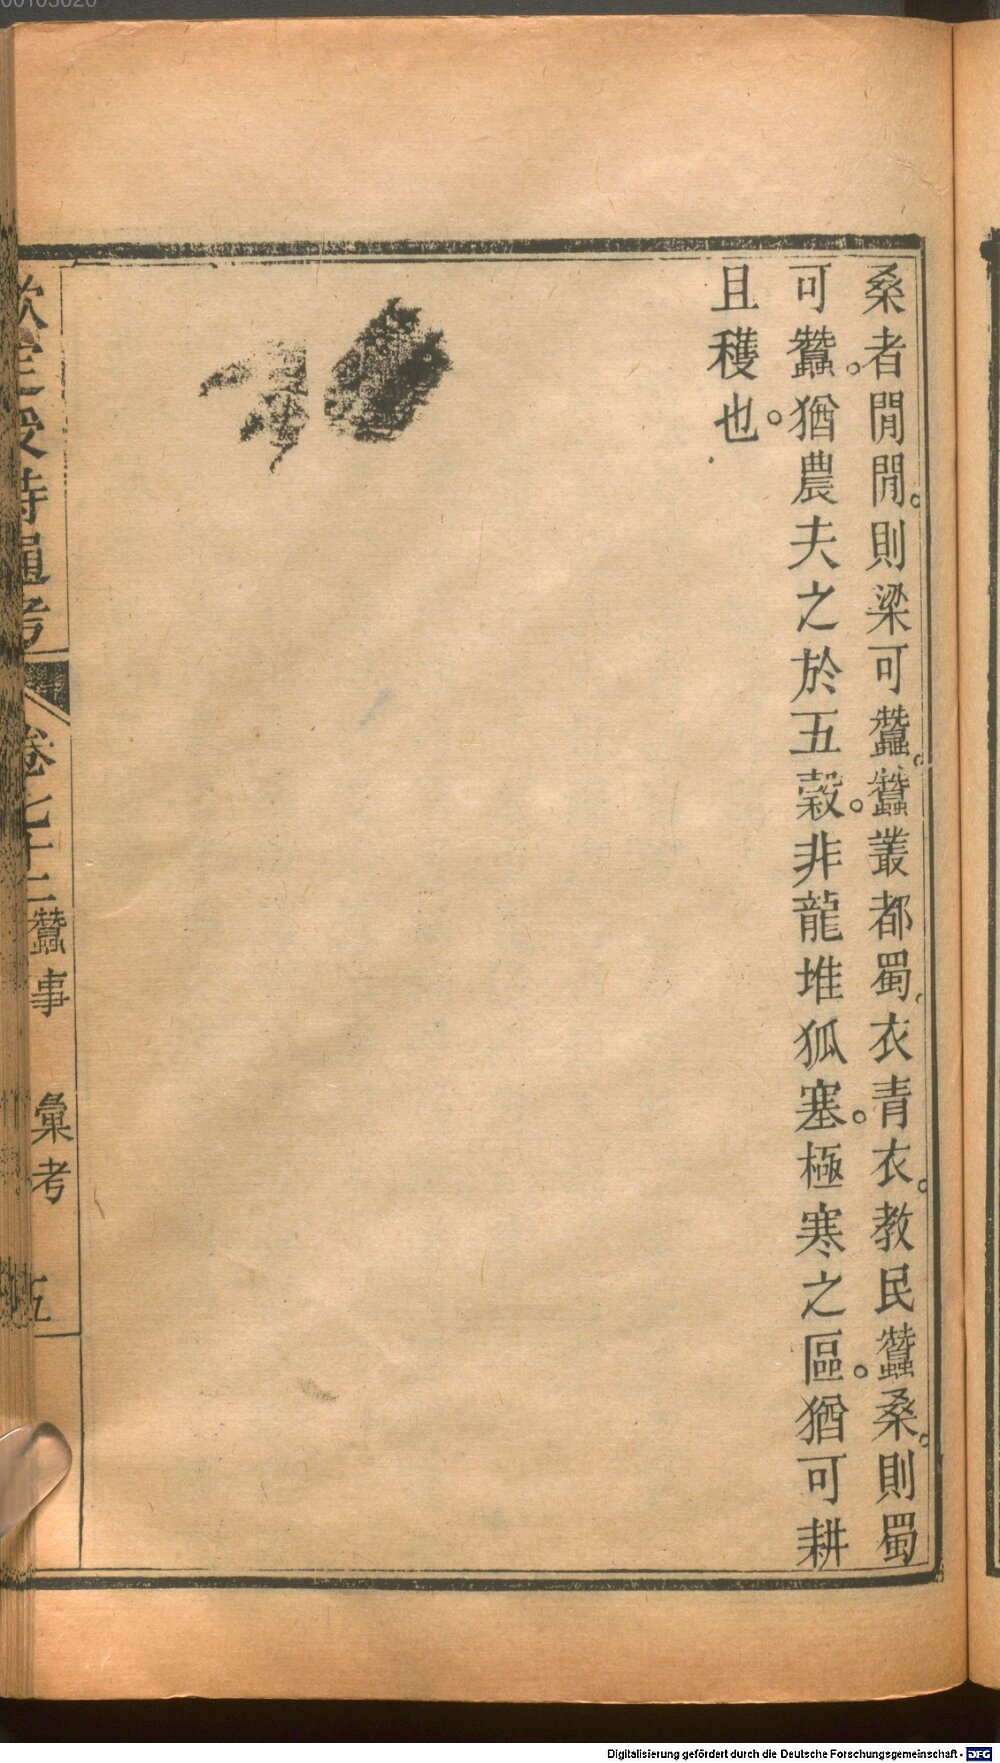 桑者閒閒。則梁可蠶。蠶叢都蜀。衣青衣。教民蠶桑。則蜀
可蠶。猶農夫之於五穀。非龍堆狐塞。極寒之區。猶可耕
且穫也。
欽定授時通考
卷七十二蠶事 彙考 五
00103020
Digitalisierung gefördert durch die Deutsche Forschungsgemeinschaft - DFG